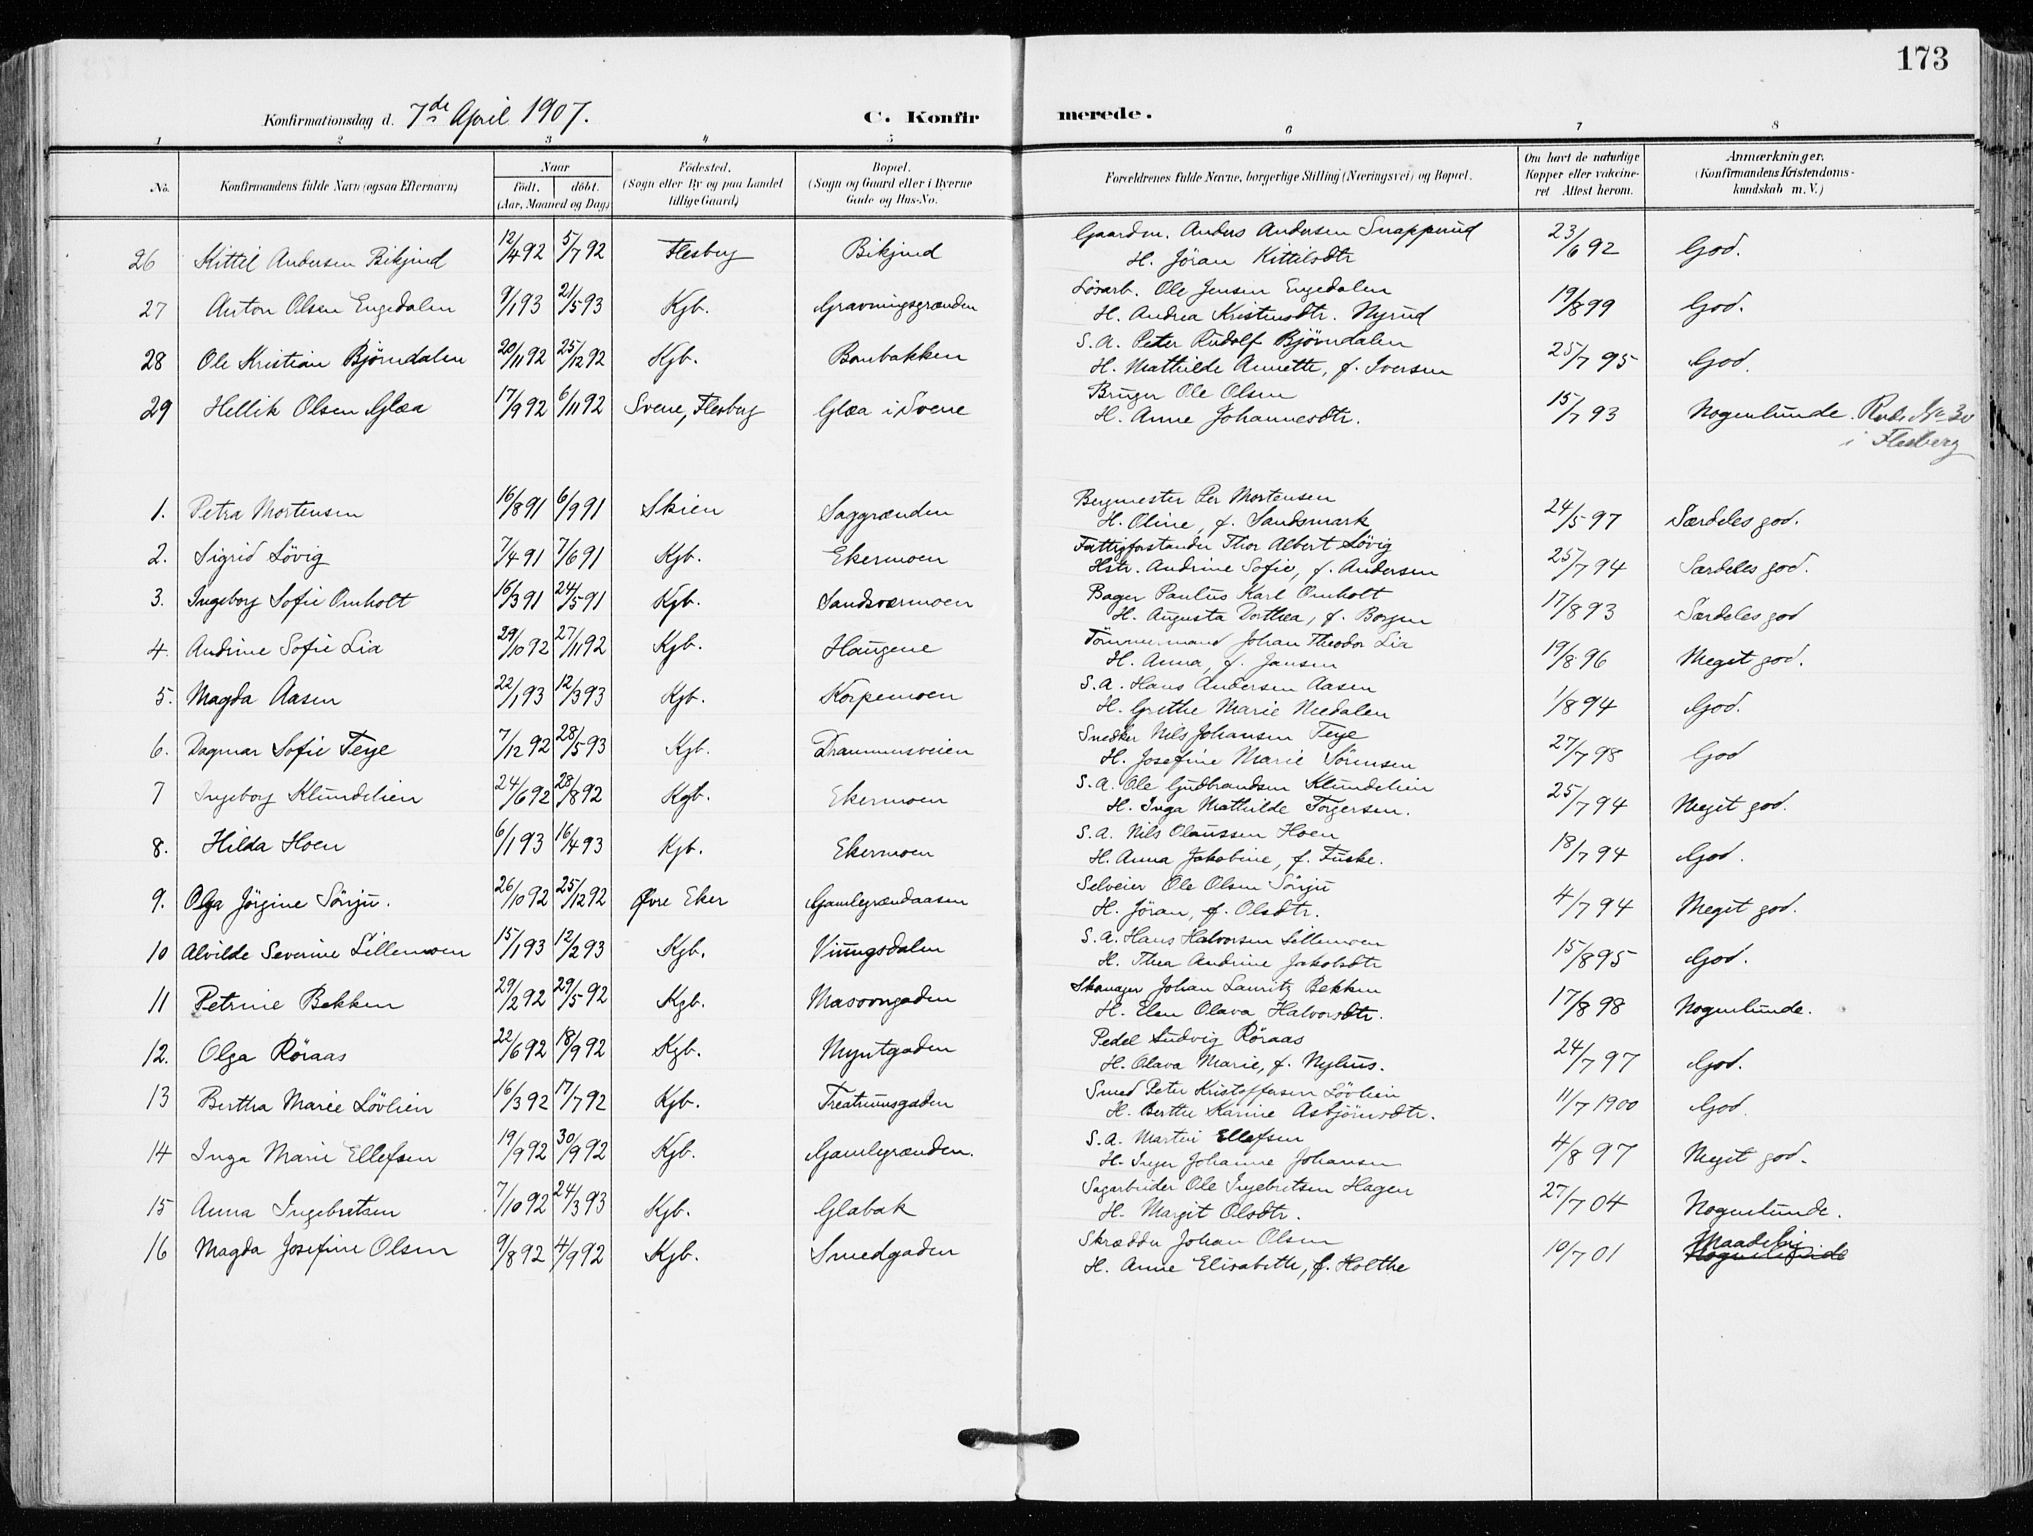 173
Konfirmationsdag d. 7de April 1907. C. Konfirmerede.
1 2 3 4 5 6 7 8
No. Konfirmandens fulde Navn (ogsaa Efternavn) Naar födt. döbt. (Aar, Maaned og Dag) Födested. (Sogn eller By og paa Landet tillige Gaard) Bopæl. (Sogn og Gaard eller i Byerne Gade og Hus-No. Forældrenes fulde Navne, borgerlige Stilling (Næringsvei) og Bopæl. Om havt de naturlige Kopper eller vaccineret Attest herom. Anmærkninger. (Konfirmandens Kristendomskundskab m. V.)
26 Kittil Andersen Bikjud 12/4 92 5/7 92 Flesberg Bikjud Gaardm. Anders Andersen Snapperud 23/6 92 God.
H. Jöran Kittilsdtr
27 Anton Olsen Engedalen 9/1 93 21/5 93 Kgb. Gravningsgrænden Lösarb. Ole Jensen Engedalen 19/8 99 God.
H. Andrea Kristensdtr. Nyrud
28 Ole Kristian Bjørndalen 20/11 92 25/12 92 Kgb. Banbakken S. A. Peter Rudolf Bjørndalen 25/7 95 God.
H. Mathilde Annette, f. Iversen
29 Hellik Olsen Glæa 17/9 92 6/11 92 Svene, Flesberg Glæa i Svene Bruger Ole Olsen 15/7 93 Nogenlunde. No 30
H. Anne Johannesdtr. i Flesberg
1. Petra Mortensen 16/8 91 6/9 91 Skien Saggrænden Bergmester Per Mortensen 24/5 97 Særdeles god.
H. Oline, f. Sandsmark
2. Sigrid Lövig 7/4 91 7/6 91 Kgb. Ekermoen Fattigforstander Thor Albert Lövig 25/7 94 Særdeles god.
Hstr. Andrine Sofie, f. Andersen
3. Ingeborg Sofie Omholt 16/3 91 24/5 91 Kgb. Sandsværmoen Bager Paulus Karl Omholt 17/8 93 Særdeles god
H. Augusta Dorthea, f. Borgen
4. Andrine Sofie Lia 29/10 92 27/11 92 Kgb. Haugene Tömmermand Johan Theodor Lia 19/8 96 Meget god.
H. Anna, f. Jansen
5. Magda Aasen 22/1 93 12/3 93 Kgb. Korpemoen S. A. Hans Andersen Aasen 1/8 94 God.
H. Grethe Marie Needalen
6. Dagmar Sofie Teye 7/12 92 28/5 93 Kgb. Drammensveien Snedker Nils Johansen Teye 27/7 98 God
H. Josefine Marie Sörensen
7 Ingeborg Klundelien 24/6 92 28/8 92 Kgb. Ekermoen S. A. Ole Gudbrandsen Klundelien 25/7 94 Meget god.
H. Inga Mathilde Torgersen.
8. Hilda Hoen 6/1 93 16/4 93 Kgb. Ekermoen S. A. Nils Olaussen Hoen 18/7 94 God.
H. Anna Jakobine, f. Fuske.
9. Olga Jörgine Sönju. 26/10 92 25/12 92 Øvre Eker Gamlegrændaasen Selveier Ole Olsen Sönju 4/7 94 Meget god.
H. Jöran, f. Olsdtr.
10 Alvilde Severine Lillemoen 15/1 93 12/2 93 Kgb. Viungsdalen S. A. Hans Halvorsen Lillemoen 15/8 95 God.
H. Thea Andrine Jakobsdtr
11 Petrine Bekken 29/2 92 29/5 92 Kgb. Masovngaden Skomager Johan Lauritz Bekken 17/8 98 Nogenlunde.
H. Elen Olava Halvorsdtr.
12. Olga Röraas 22/6 92 18/9 92 Kgb. Myntgaden Pedel Ludvig Röraas 24/7 97 God.
H. Olava Marie, f. Nyhus.
13 Bertha Marie Lövlien 16/3 92 17/7 92 Kgb. Treatrumsgaden Smed Peter Kristoffersen Lövlien 11/7 1900 God.
H. Berthe Karine Asbjörnsdtr.
14 Inga Marie Ellefsen 19/9 92 30/9 92 Kgb. Gamlegrænden. S. A. Martin Ellefsen 4/8 97 Meget god.
H. Inger Johanne Johansen
15 Anna Ingebretsen 7/10 92 24/3 93 Kgb. Glabak Sagarbeider Ole Ingebretsen Hagen 27/7 04 Nogenlunde.
H. Margit Olsdtr.
16 Magda Josefine Olsen 9/8 92 4/9 92 Kgb. Smedgaden Skrædder Johan Olsen 10/7 01 Maadelig Nogenlunde
H. Anne Elisabeth, f. Holthe